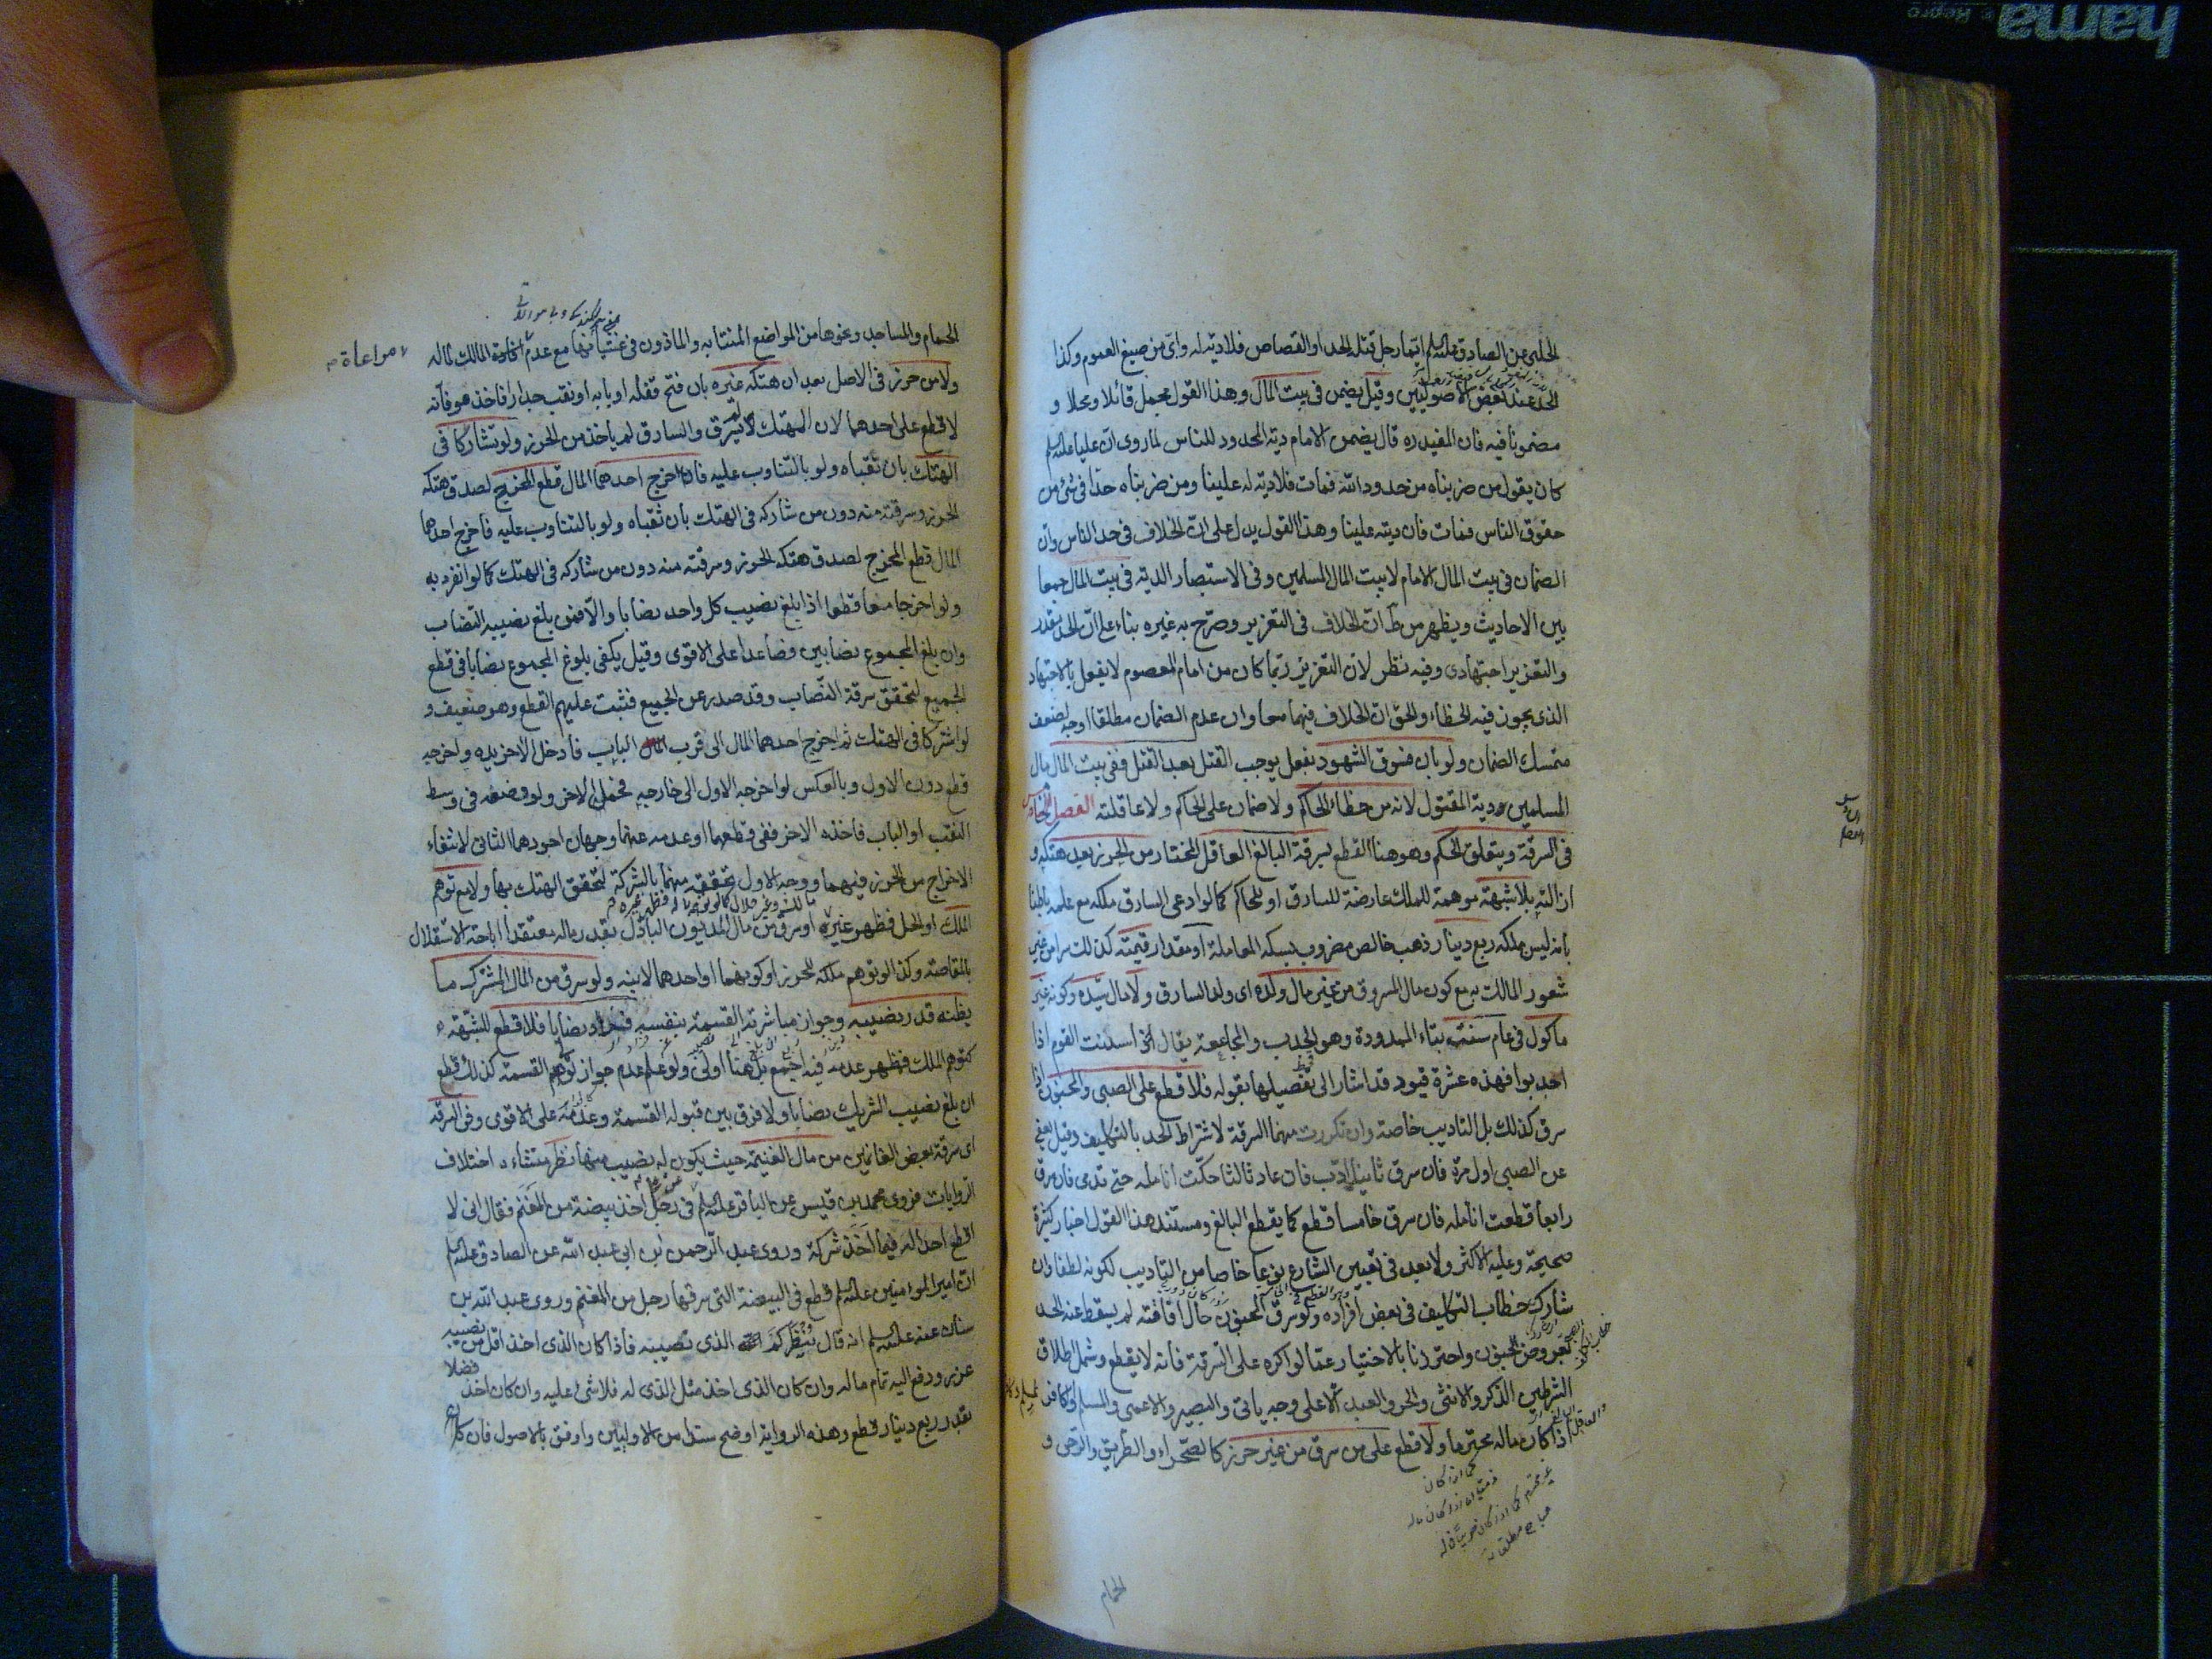 الحلبي عن الصادق عليه السلم ايما رجل قتله الحد او القصاص فلا دية له واي من صيغ العموم وكذا
الحد عند بعض الاصوليين وقيل يضمن في بيت المال وهذا القول مجمل قائلا ومحلا و
مضمونا فيه فان المفيد ره قال يضمن الامام دية المحدود للناس لما روى ان عليا عليه السلم
كان يقول من ضربناه من حدود الله فمات فلا دية له علينا ومن ضربناه حدا في شئ من
حقوق الناس فمات فان ديته علينا وهذا القول يدل على ان الخلاف في حد الناس وان
الضمان في بيت المال الامام لا بيت المال المسلمين وفي الاستبصار الدية في بيت المال جمعا
بين الاحاديث ويظهر من ط ان الخلاف في التعزير وصرح به غيره بناء على ان الحد مقدر
والتعزير اجتهادى وفيه نظر لان التعزير ربما كان من امام المعصوم لا يفعل بالاجتهاد
الذى يجوز فيه الخطاء والحق ان الخلاف فيهما معا وان عدم الضمان مطلقا اوجه لضعف
متمسك الضمان ولو بان فسوق الشهود بفعل يوجب القتل بعد القتل ففي بيت المال مال
المسلمين دية المقتول لانه من خطاء الحاكم ولا ضمان على الحاكم ولا عاقلته الفصل الخامس
في السرقة ويتعلق الحكم وهو هنا القطع بسرقة البالغ العاقل المختار من الحرز بعد هتكه و
ازالته بلا شبهة موهمة للملك عارضة للسارق او للحاكم كما لو ادعى السارق ملكه مع علمه باطنا
بانه ليس ملكه ربع دينار ذهب خالص مضروب بسكه المعاملة او مقدار قيمته كذلك سرا من غير
شعور المالك به مع كون مال المسروق من غير مال ولده اى ولد السارق ولا مال سيده وكونه غير
ماكول في عام سنت بتاء الممدودة وهو الجدب والمجاعة يقال اسنت القوم اذا
اجدبوا فهذه عشرة قيود قد اشار الى تفصيلها بقوله فلا قطع على الصبى والمجنون اذا
سرق كذلك بل التاديب خاصة وان تكررت منهما السرقة لاشتراط الحد بالتكليف وقيل يعفى
عن الصبى اول مرة فان سرق ثانيا ادب فان عاد ثالثا حكت انامله حتى تدمى فان سرق
رابعا قطعت انامله فان سرق خامسا قطع كما يقطع البالغ ومستند هذا القول اخبار كثيرة
صحيحة وعليه الاكثر ولا بعد في تعيين الشارع نوعا خاصا من التاديب لكونه لطفا وان
شارك خطاب التكليف في بعض افراده ولو سرق المجنون حال افاقته لم يسقط عنه الحد
بعروض الجنون واحترزنا بالاختيار عما لو اكره على السرقة فانه لا يقطع وشمل اطلاق
الشرطين الذكر والانثى والحر والعبد الا على وجه ياتى والبصير والاعمى والمسلم والكافر
اذا كان ماله محترما ولا قطع على من سرق من غير حرز كالصحراء والطريق والرحى و
الحمام
الحمام والمساجد ونحوها من المواضع المنتابه والماذون في غشيانها مع عدم المالك لماله
مراعاة
ولا من حرز في الاصل بعد ان هتكه غيره بان فتح قفله او بابه او نقب جدارا فاخذ هو فانه
لا قطع على احدهما لان المهتك لم يسرق والسارق لم ياخذ من الحرز ولو تشاركا في
الهتك بان نقباه ولو بالتناوب عليه فان اخرج احدهما المال قطع المخرج لصدق هتكه
الحرز وسرقته منه دون من شاركه في الهتك بان نقباه ولو بالتناوب عليه فاخرج احدهما
المال قطع المخرج لصدق هتكه الحرز وسرقته منه دون من شاركه في الهتك كما لو انفرد به
ولو اخرجا معا قطعا اذا بلغ نصيب كل واحد نصابا والا فمن بلغ نصيبه النصاب
وان بلغ المجموع نصابين فصاعدا على الاقوى وقيل يكفى بلوغ المجموع نصابا في قطع
الجميع لتحقق سرقة النصاب وقد صدر عن الجميع فثبت عليهم القطع وهو ضعيف و
لو اشتركا في الهتك ثم اخرج احدهما المال الى قرب الباب فادخل الاخر يده واخرجه
قطع دون الاول وبالعكس لو اخرجه الاول الى خارجه فحمله الاخر ولو وضعه في وسط
النقب او الباب فاخذه الاخر ففى قطعهما او عدمه عنهما وجهان اجودهما الثانى لانتفاء
الاخراج من الحرز فيهما ووجه الاول تحققه منهما بالشركة كتحقق الهتك بها ولا مع توهم
الملك او الحل فظهر غيره او سرق من مال المديون الباذل بقدر ماله معتقدا اباحة الاستقلال
بالمقاصة وكذا لو توهم ملكه للحرز او كونهما او احدهما لابنه ولو سرق من المال المشترك ما
يظنه قدر نصيبه وجواز مباشرته القسمة بنفسه فزاد نصابا فلا قطع للشبهة
كتوهم الملك فظهر عدمه فيه اجمع بل هنا اولى ولو علم عدم جواز تولى القسمة كذلك قطع
ان بلغ نصيب الشريك نصابا ولا فرق بين قبوله القسمة وعدمه على الاقوى وفي السرقة
اى سرقة بعض الغانمين من مال الغنيمة حيث يكون له نصيب منها نظر منشاءه اختلاف
الروايات فروى محمد بن قيس عن الباقر عليه السلم في رجل اخذ بيضة من المغنم فقال انى لا
اقطع احدا له فيما اخذ شركة وروى عبد الرحمن بن ابى عبد الله عن الصادق عليه السلم
ان امير المومنين عليه السلم قطع في البيضة التى سرقها رجل من المغنم وروى عبد الله بن
سنان عنه عليه السلم انه قال ينظر كم الذى نصيبه فاذا كان الذى اخذ اقل من نصيبه
عزر ودفع اليه تمام ماله وان كان الذى اخذ مثل الذى له فلا شئ عليه وان كان اخذ فضلا
بقدر ربع دينار قطع وهذه الرواية اوضح سندا من الاوليين واوفق بالاصول فان
hama
Repro